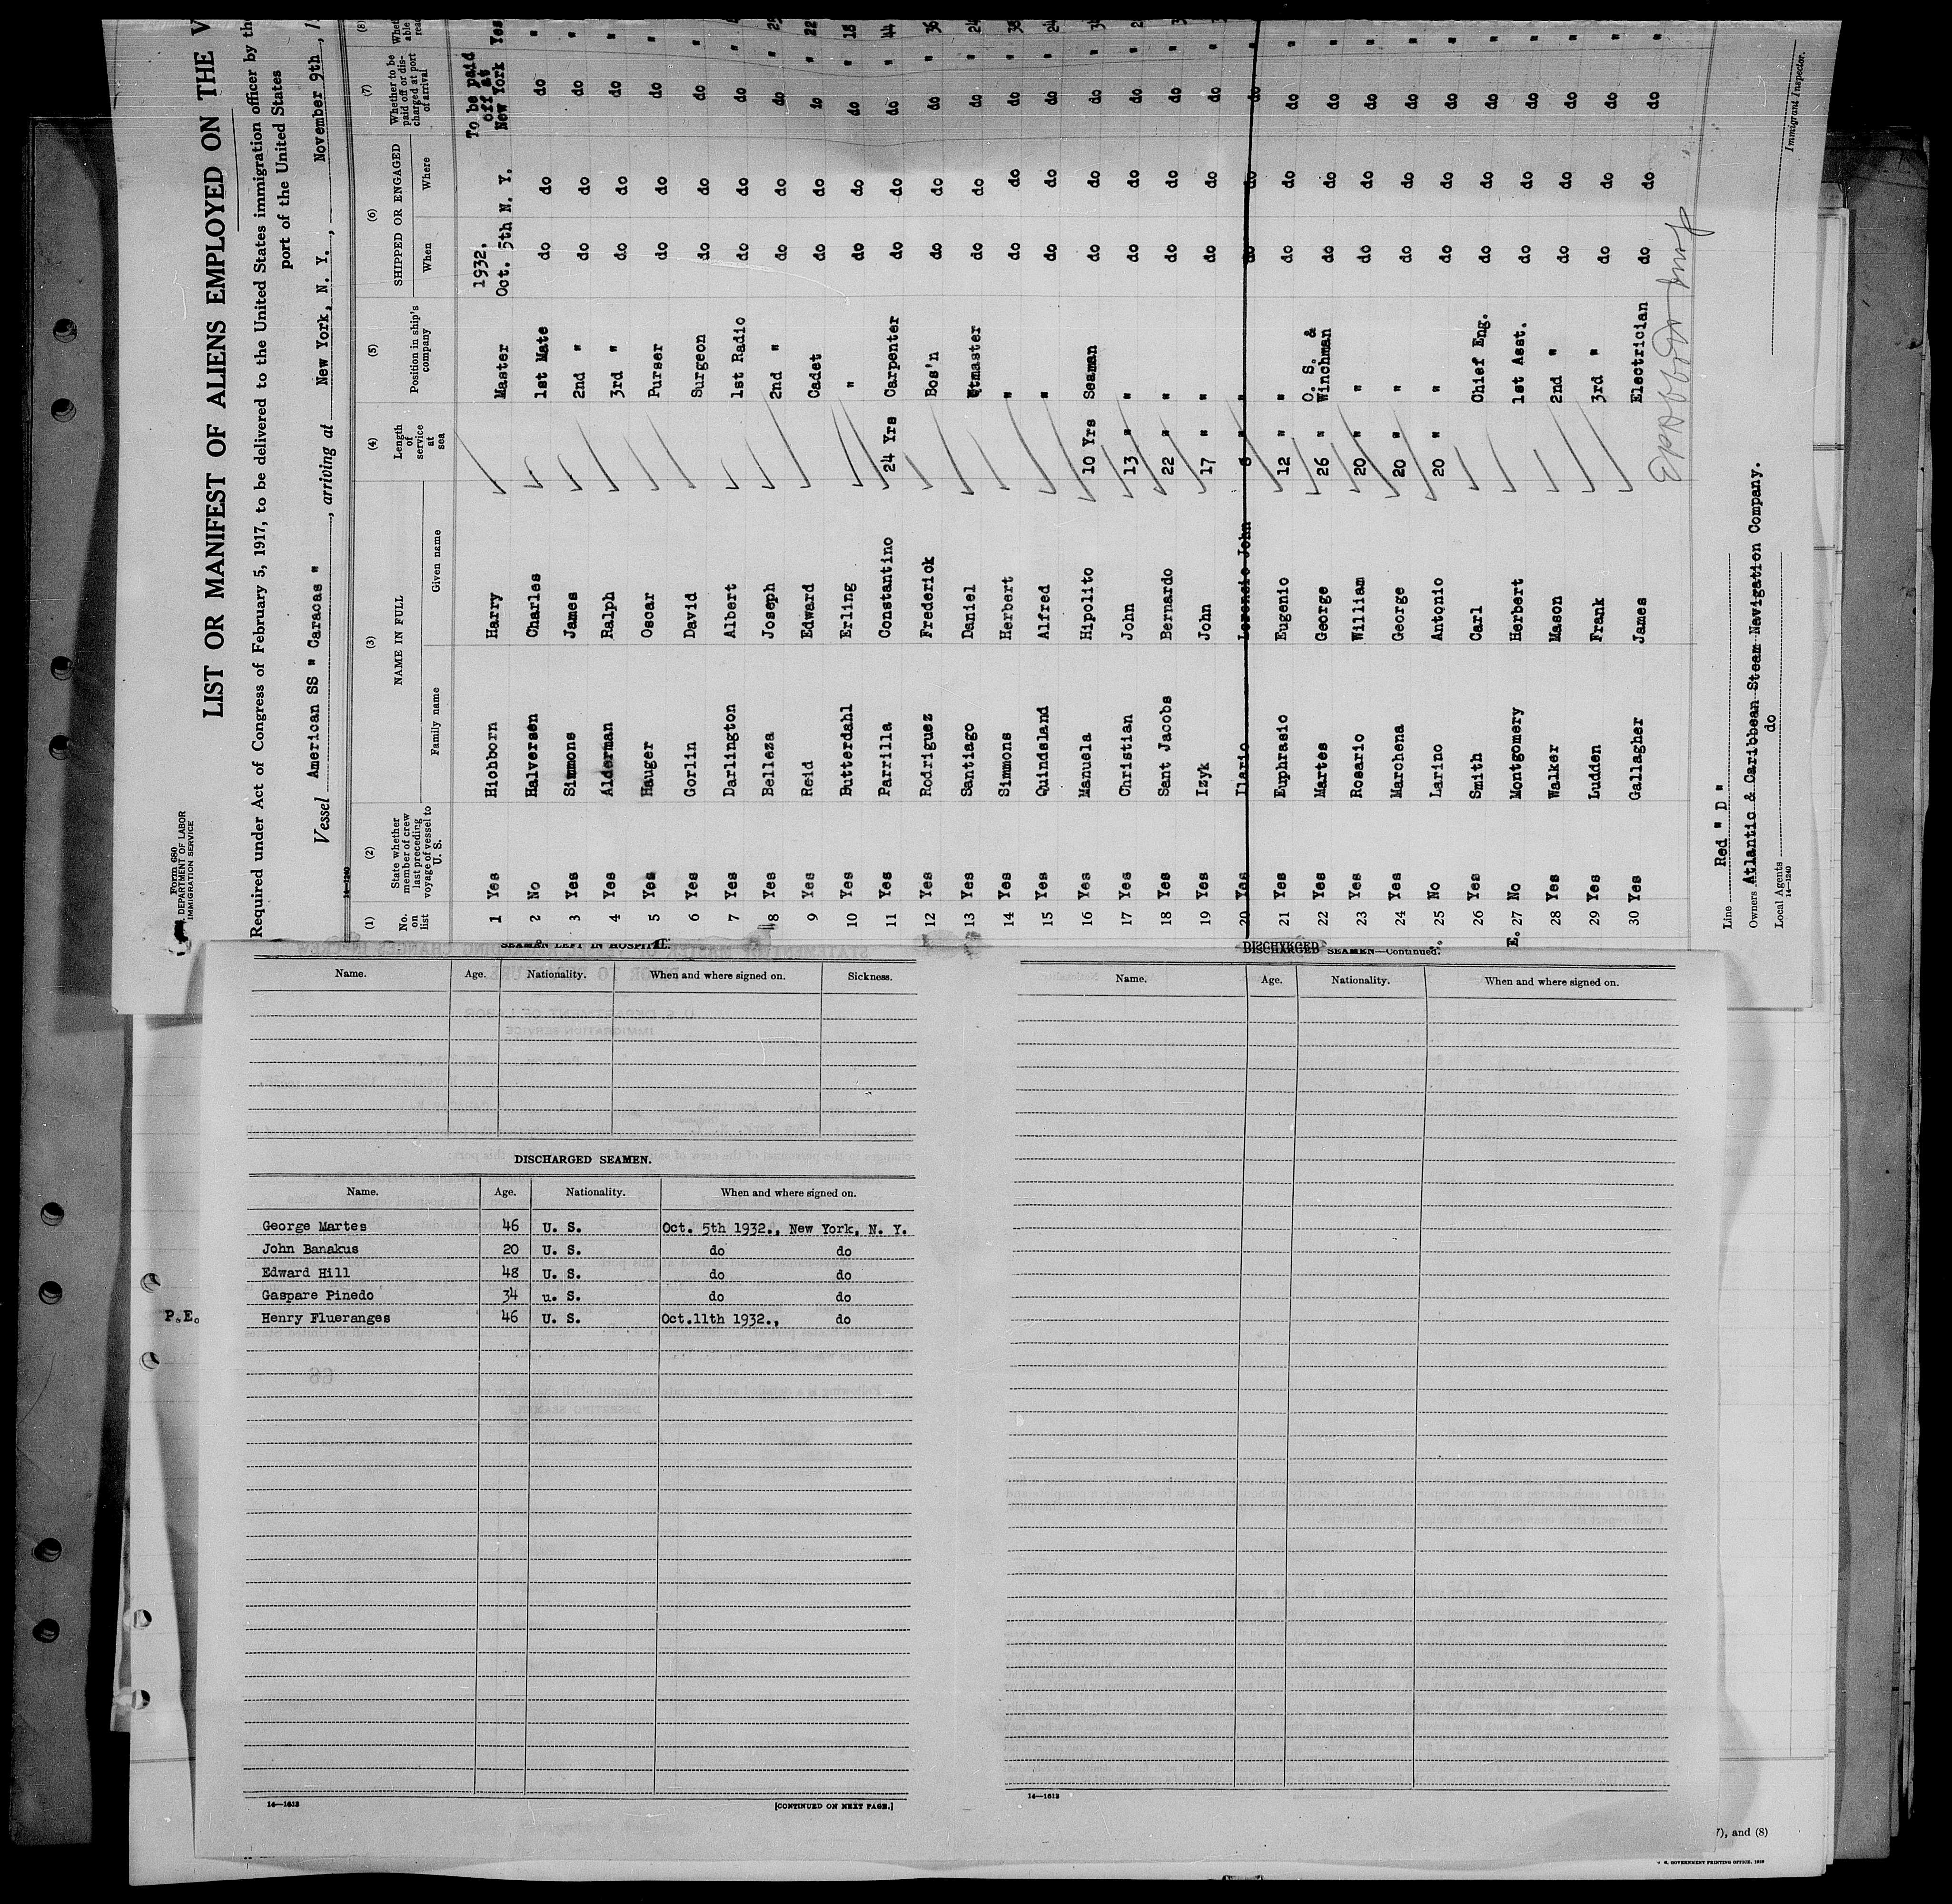 Form 680
DEPARTMENT OF LABOR
IMMIGRATION SERVICE
LIST OR MANIFEST OF ALIENS EMPLOYED ON THE V
Required under Act of Congress of February 5, 1917, to be delivered to the United States immigration officer by the
port of the United States
Vessel American SS " Caracas ", arriving at New York, N. Y., November 9th, 1
14-1240
(1) (2) (3) (4) (5) (6) (7) (8)
No. on list
State whether member of crew last preceding voyage of vessel to U. S.
NAME IN FULL
Family name Given name
Length of service at sea
Position in ship's company
SHIPPED OR ENGAGED
When Where
Whether to be paid off or discharged at port of arrival
1 Yes Hichborn Harry Master 1932. Oct. 5th N. Y. To be paid off at New York Yes
2 No Halversen Charles 1st Mate do do do "
3 Yes Simmons James 2nd " do do do "
4 Yes Alderman Ralph 3rd " do do do "
5 Yes Hauger Oscar Purser do do do "
6 Yes Gorlin David Surgeon do do do "
7 Yes Darlington Albert 1st Radio do do do "
8 Yes Belleza Joseph 2nd " do do do "
9 Yes Reid Edward Cadet do do do " 22
10 Yes Butterdahl Erling " do do do " 18
11 Yes Parrilla Constantino 24 Yrs Carpenter do do do " 44
12 Yes Rodriguez Frederick Bos'n do do do " 36
13 Yes Santiago Daniel Qtmaster do do do " 24
14 Yes Simmons Herbert " do do do " 38
15 Yes Quindsland Alfred " do do do " 24
16 Yes Manuela Hipolito 10 Yrs Seaman do do do "
17 Yes Christian John 13 " " do do do "
18 Yes Sant Jacobs Bernardo 22 " " do do do "
19 Yes Izyk John 17 " " do do do "
20 Yes Ilario John " " do do do "
21 Yes Euphrasio Eugenio 12 " " do do do "
22 Yes Martes George 26 " O. S. & Winchman do do do "
23 Yes Rosario William 20 " " do do do "
24 Yes Marchena George 20 " " do do do "
25 No Larino Antonio 20 " " do do do "
26 Yes Smith Carl Chief Eng. do do do "
E. 27 No Montgomery Herbert 1st Asst. do do do "
28 Yes Walker Mason 2nd " do do do "
29 Yes Ludden Frank 3rd " do do do "
30 Yes Gallagher James Electrician do do do "
Line Red " D "
Owners Atlantic & Caribbean Steam Navigation Company.
Local Agents do
14-1240
Immigrant Inspector.
SEAMEN LEFT IN HOSPITAL.
Name. Age. Nationality. When and where signed on. Sickness.
DISCHARGED SEAMEN.
Name. Age. Nationality. When and where signed on.
George Martes 46 U. S. Oct. 5th 1932., New York, N. Y.
John Banakus 20 U. S. do do
Edward Hill 48 U. S. do do
Gaspare Pinedo 34 u. S. do do
P.E. Henry Flueranges 46 U. S. Oct.11th 1932., do
14-1613
[CONTINUED ON NEXT PAGE.]
DISCHARGED SEAMEN—Continued.
Name. Age. Nationality. When and where signed on.
14-1613
), and (8)
GOVERNMENT PRINTING OFFICE